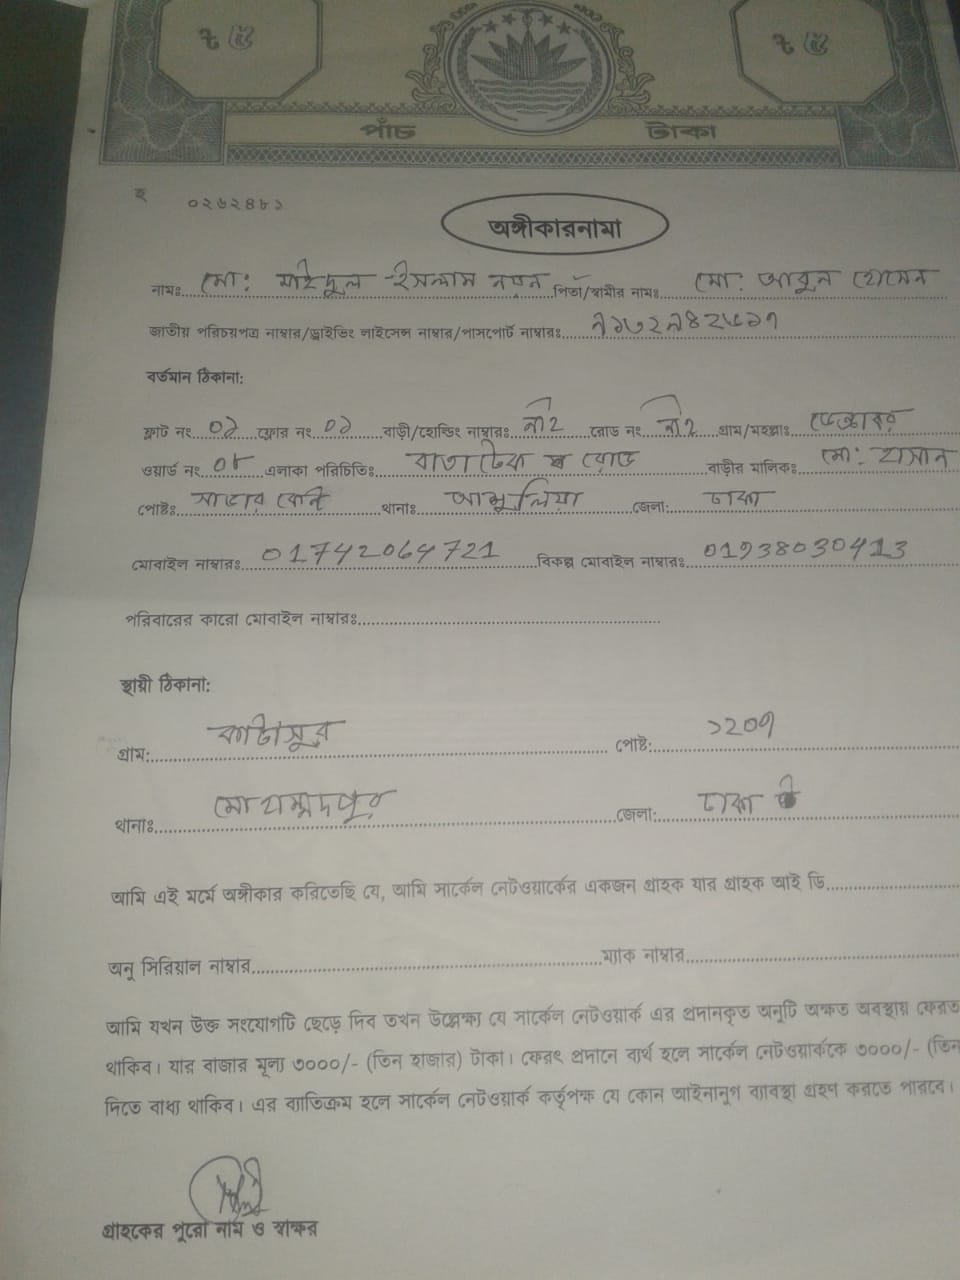 ট ৫ ট ৫
পাঁচ টাকা
ই ০২৬২৪৮১
অঙ্গীকারনামা
নামঃ মো: মাইদুল ইসলাম নয়ন পিতা/স্বামীর নামঃ মো: আবুল হোসেন
জাতীয় পরিচয়পত্র নাম্বার/ড্রাইভিং লাইসেন্স নাম্বার/পাসপোর্ট নাম্বারঃ
বর্তমান ঠিকানা:
ফ্লাট নং ০১ ফ্লোর নং ০১ বাড়ী/হোল্ডিং নাম্বারঃ নাই রোড নং নাই গ্রাম/মহল্লাঃ
ওয়ার্ড নং ০৮ এলাকা পরিচিতিঃ রোড বাড়ীর মালিকঃ মো: হাসান
পোষ্টঃ সাভার কেন্ট থানাঃ আশুলিয়া জেলা: ঢাকা
মোবাইল নাম্বারঃ 01742064721 বিকল্প মোবাইল নাম্বারঃ 01938030413
পরিবারের কারো মোবাইল নাম্বারঃ
স্থায়ী ঠিকানা:
গ্রাম: কাটাসুর পোষ্ট: ১২০৭
থানাঃ মোহাম্মদপুর জেলা: ঢাকা
আমি এই মর্মে অঙ্গীকার করিতেছি যে, আমি সার্কেল নেটওয়ার্কের একজন গ্রাহক যার গ্রাহক আই ডি
অনু সিরিয়াল নাম্বার ম্যাক নাম্বার
আমি যখন উক্ত সংযোগটি ছেড়ে দিব তখন উল্লেক্ষ্য যে সার্কেল নেটওয়ার্ক এর প্রদানকৃত অনুটি অক্ষত অবস্থায় ফেরত
থাকিব। যার বাজার মূল্য ৩০০০/- (তিন হাজার) টাকা। ফেরৎ প্রদানে ব্যর্থ হলে সার্কেল নেটওয়ার্ককে ৩০০০/- (তিন
দিতে বাধ্য থাকিব। এর ব্যাতিক্রম হলে সার্কেল নেটওয়ার্ক কর্তৃপক্ষ যে কোন আইনানুগ ব্যাবস্থা গ্রহণ করতে পারবে।
গ্রাহকের পুরো নাম ও স্বাক্ষর